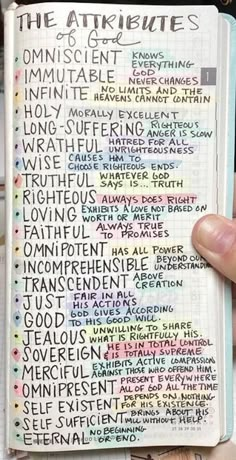 THE ATTRIBUTES
of God
OMNISCIENT KNOWS EVERYTHING
IMMUTABLE GOD NEVER CHANGES
INFINITE NO LIMITS AND THE HEAVENS CANNOT CONTAIN
HOLY MORALLY EXCELLENT
LONG-SUFFERING RIGHTEOUS ANGER IS SLOW
WRATHFUL HATRED FOR ALL UNRIGHTEOUSNESS
WISE CAUSES HIM TO CHOOSE RIGHTEOUS ENDS.
TRUTHFUL WHATEVER GOD SAYS IS... TRUTH
RIGHTEOUS ALWAYS DOES RIGHT
LOVING EXHIBITS A LOVE NOT BASED ON WORTH OR MERIT
FAITHFUL ALWAYS TRUE TO PROMISES
OMNIPOTENT HAS ALL POWER
INCOMPREHENSIBLE BEYOND OUR UNDERSTANDING
TRANSCENDENT ABOVE CREATION
JUST FAIR IN ALL HIS ACTIONS
GOOD GOD GIVES ACCORDING TO HIS GOOD WILL.
JEALOUS UNWILLING TO SHARE WHAT IS RIGHTFULLY HIS.
SOVEREIGN HE IS IN TOTAL CONTROL & IS TOTALLY SUPREME
MERCIFUL EXHIBITS ACTIVE COMPASSION AGAINST THOSE WHO OFFEND HIM.
OMNIPRESENT PRESENT EVERYWHERE ALL OF GOD ALL THE TIME
SELF EXISTENT DEPENDS ON NOTHING FOR HIS EXISTENCE.
SELF SUFFICIENT BRINGS ABOUT HIS WILL WITHOUT HELP.
ETERNAL NO BEGINNING OR END.